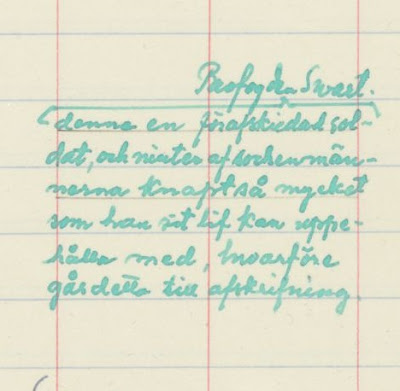 Profogden Swart.
denna en förafskiedad sol-
dat, och niuter af sockenmän-
nerna knapt så mycket
som han sit lif kan uppe-
hålla med, hvarföre
gårdetta till afskrifning.